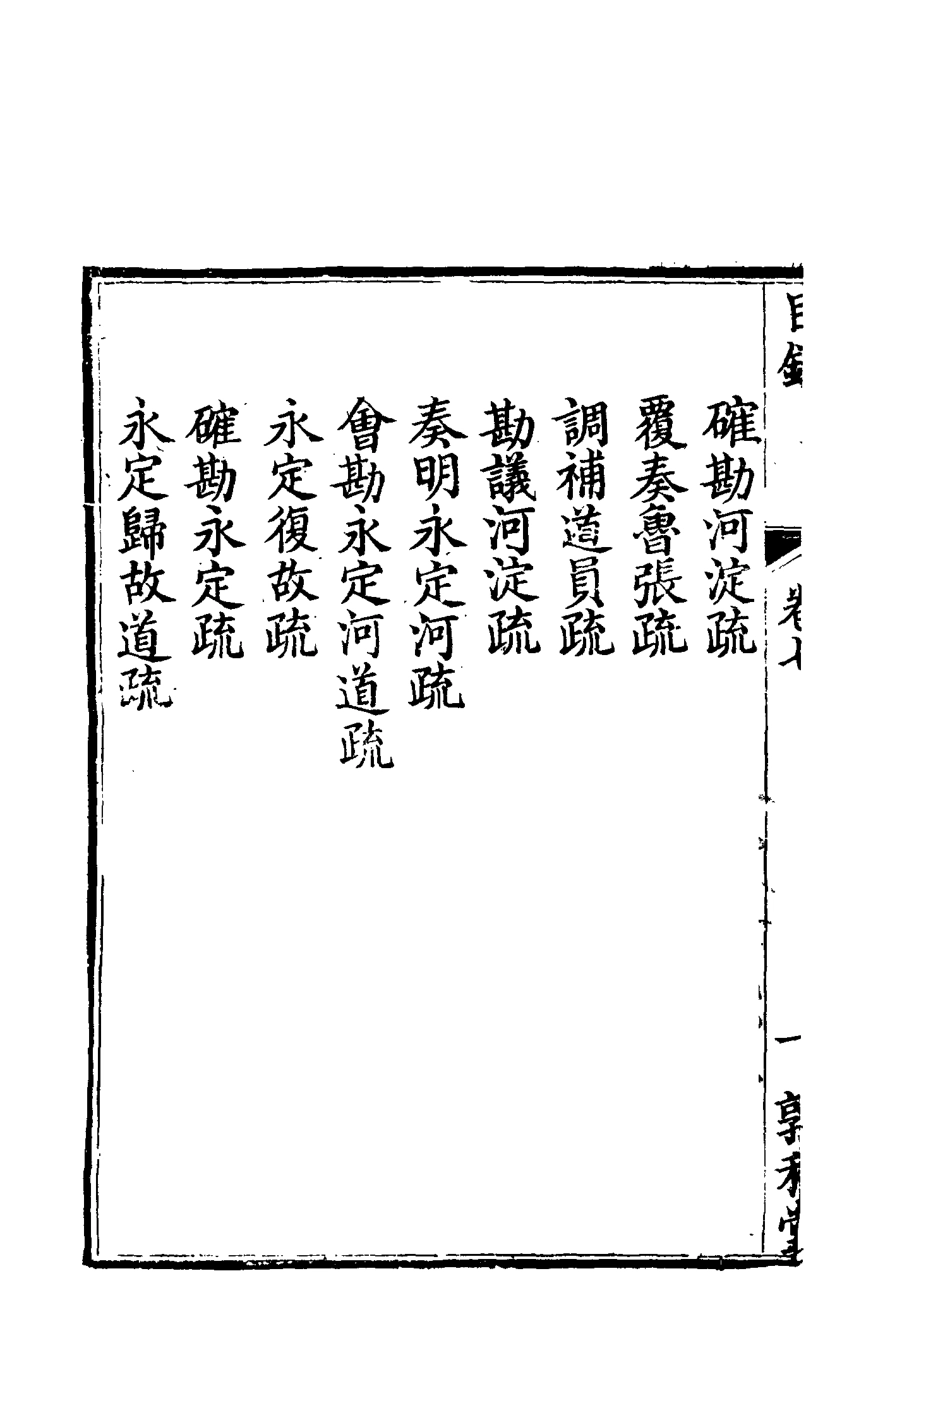 目錄 卷七 一 敦和堂
確勘河淀疏
覆奏魯張疏
調補道員疏
勘議河淀疏
奏明永定河疏
會勘永定河道疏
永定復故疏
確勘永定疏
永定歸故道疏